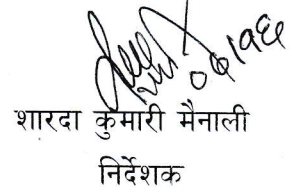 शारदा कुमारी मैनाली
निर्देशक